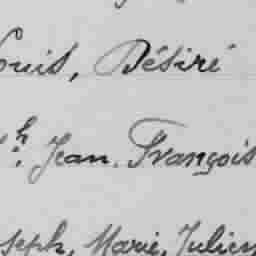 ouis, Désiré
h. Jean. François
seph, Marie, Julien